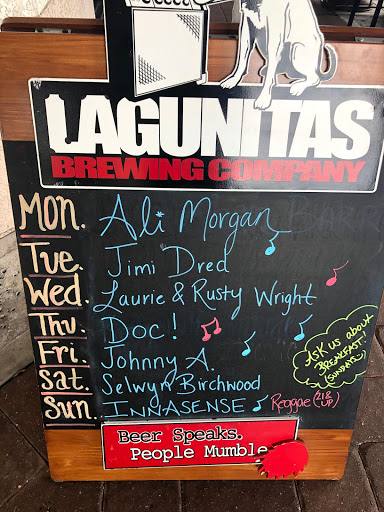 LAGUNITAS
BREWING COMPANY
MON. Ali Morgan
Tue. Jimi Dred
Wed. Laurie & Rusty Wright
Thu. Doc!
Fri. Johnny A.
Sat. Selwyn Birchwood
Sun. INNASENSE Reggae
ASK us about
BREAKFAST.
(SUNDAYS)
Beer Speaks.
People Mumble